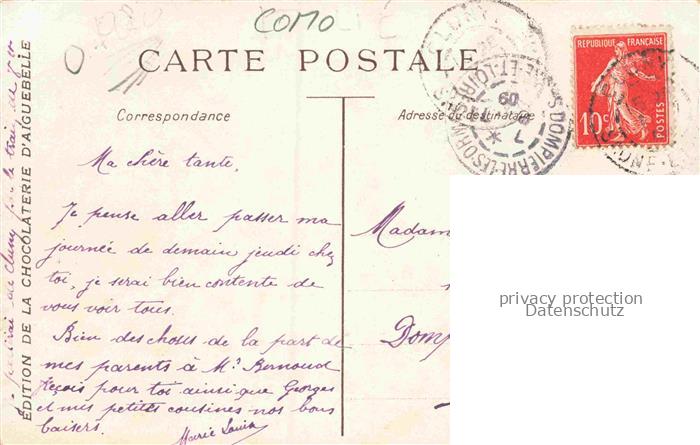 COMO
CARTE POSTALE
Correspondance
Adresse du destinataire
REPUBLIQUE FRANÇAISE
10c
POSTES
Ma chère tante,
Je pense aller passer ma
journée de demain jeudi chez
toi, je serai bien contente de
vous voir tous.
Bien des choses de la part de
mes parents à Mr Bernoud
Reçois pour toi ainsi que Georges
et mes petites cousines nos bons
baisers.
Marie Louise
Madam
Domp
privacy protection
Datenschutz
EDITION DE LA CHOCOLATERIE D'AIGUEBELLE
Je partirai de Cluny par le train de
CLUNY
DOMPIERRE-LES-ORMES
7
09